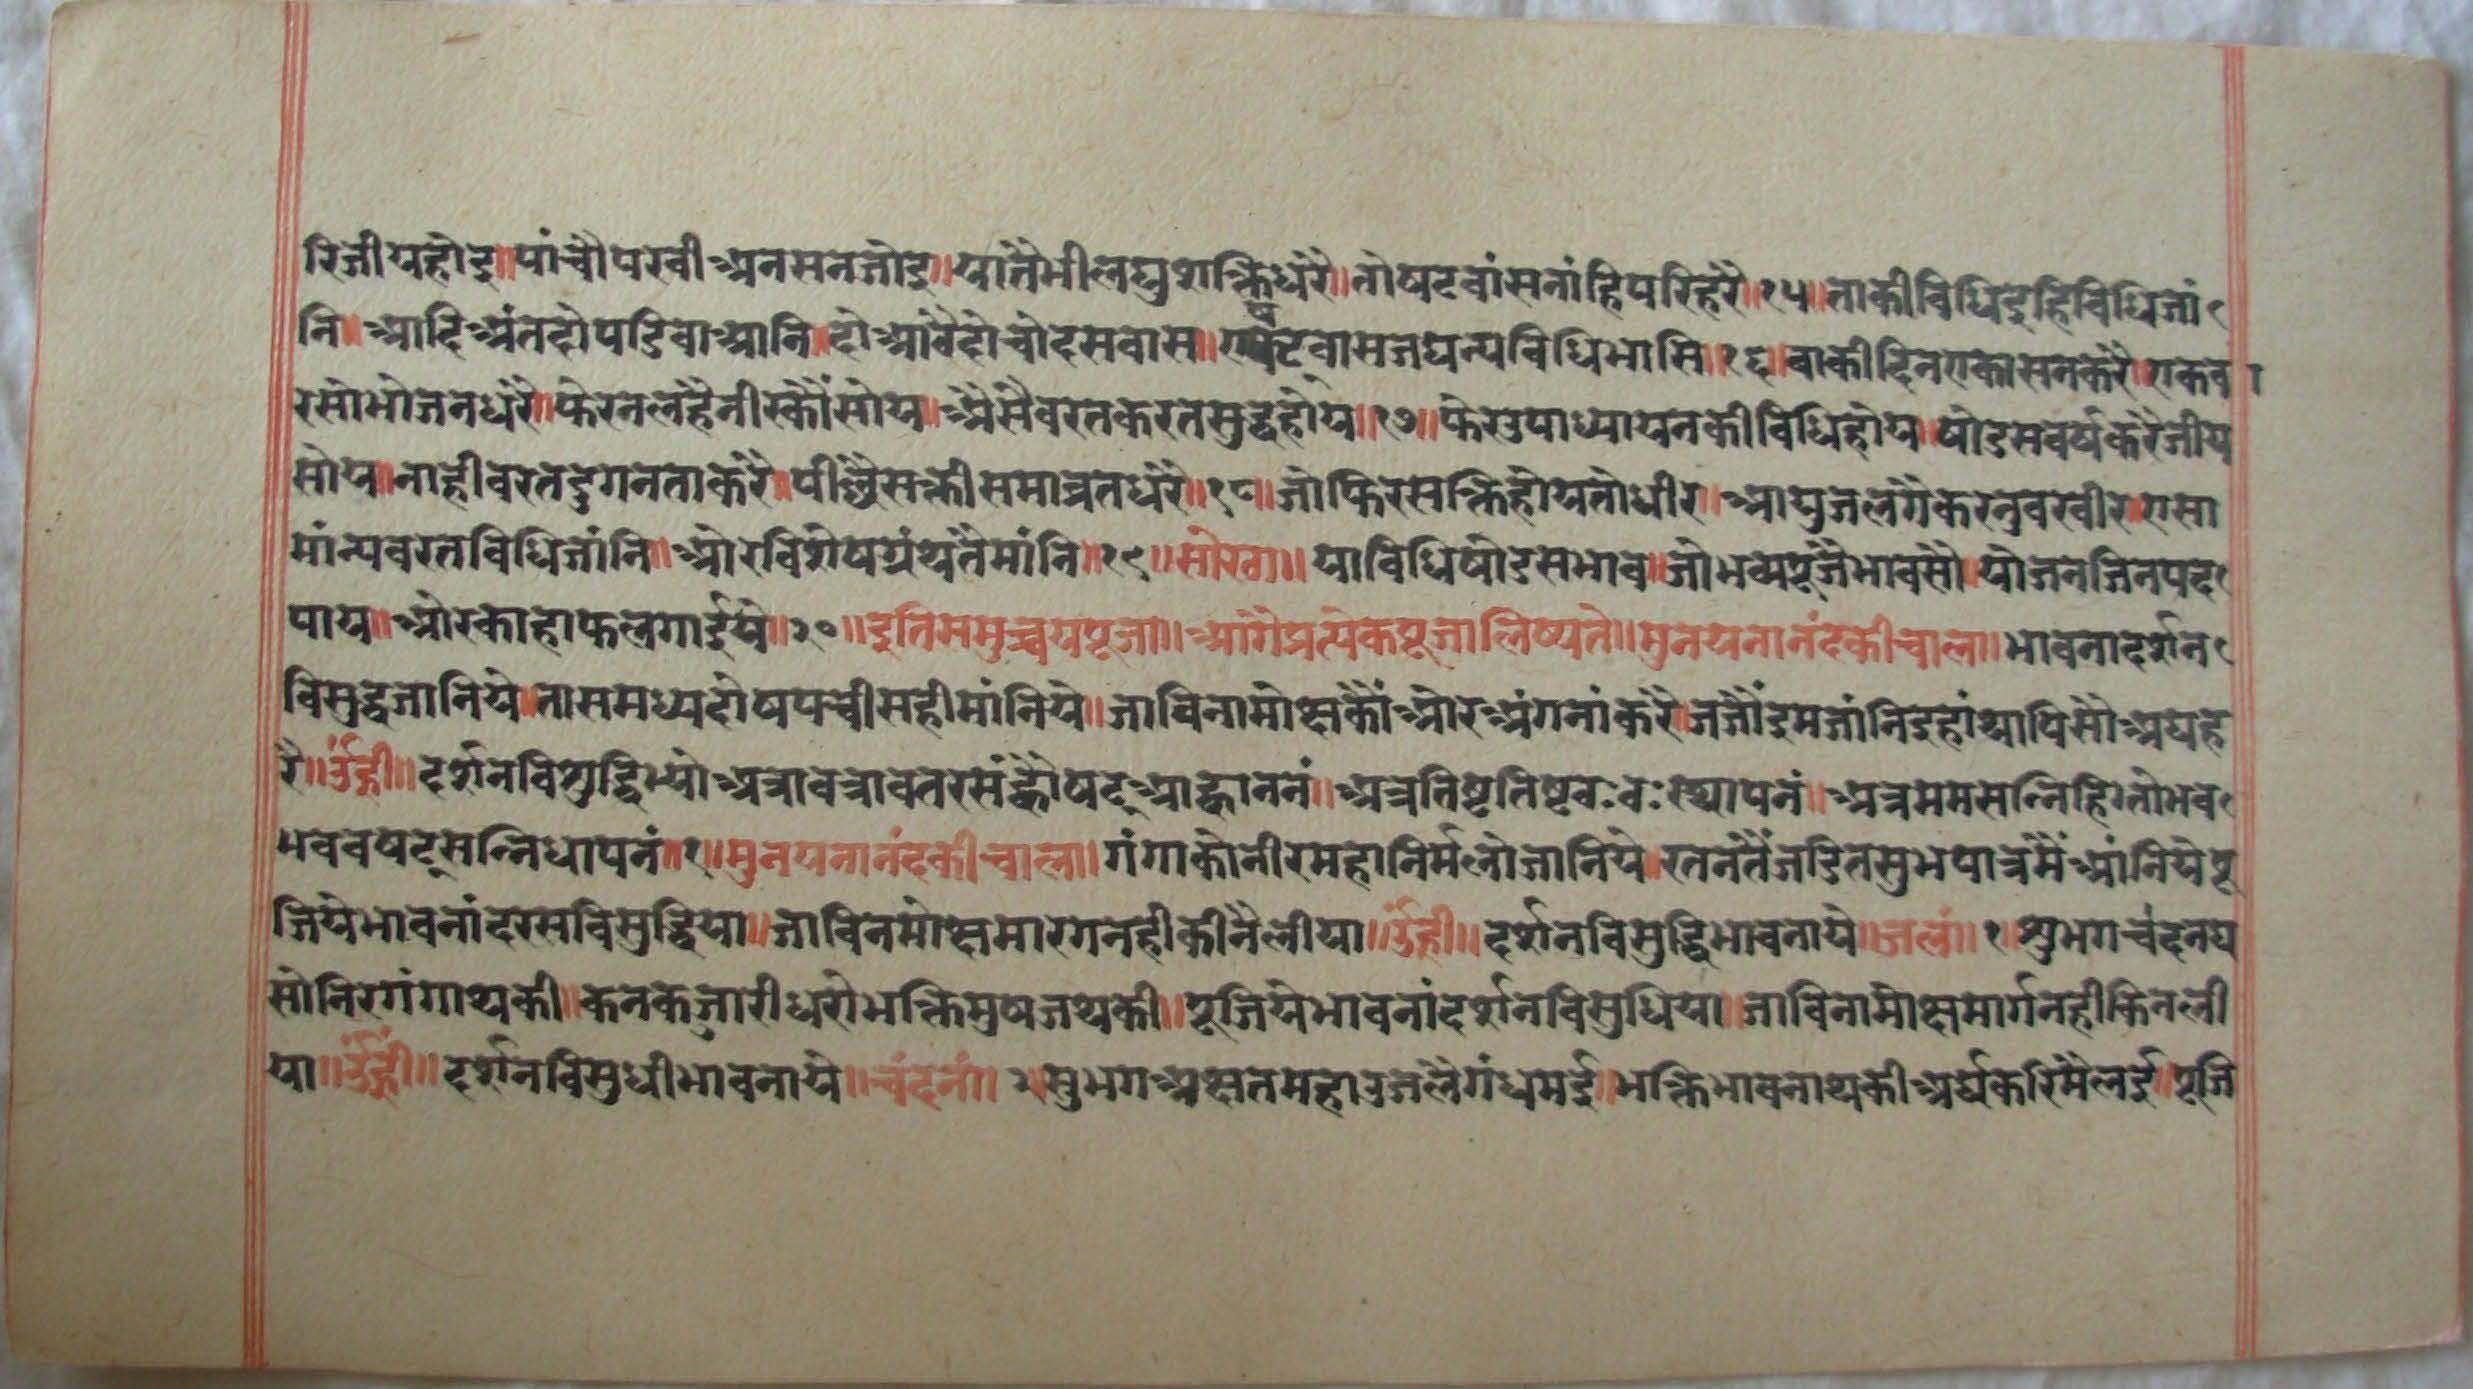 रिजीयहोइ॥पांचौपरवीअनसनजोइ॥यातैभीलघुशक्तिधरै॥तोषटवांसनांहिपरिहरै॥१५॥ताकीविधिइहिविधिजां
नि॥आदिअंतदोपडिवाआनि॥दोआवैदोचोदसवास॥एषटवासजघन्यविधिभासि॥१६॥बाकीदिनएकासनकरै॥एकव
रसोभोजनधरै॥फेरनलहैनीरकौंसोय॥अैसैवरतकरतसुद्धहोय॥१७॥फेरउपाध्यायनकीविधिहोय॥षोडसवर्षकरैजीय
सोय॥नाहीवरतदुगनताकरै॥पीछैसक्तीसमाव्रतधरै॥१८॥जोफिरसक्तिहोयतोधीर॥आयुजलगैकरनुवरवीर॥एसा
मांन्यवरतविधिजांनि॥ओरविशेषग्रंथतैमांनि॥१९॥सोरठा॥याविधिषोडसभाव॥जोभव्यपूजैभावसौ॥योजनजिनपद
पाय॥ओरकाहाफलगाईये॥२०॥इतिसमुच्चयपूजा॥आगैप्रत्येकपूजालिष्यते॥मुनयनानंदकीचाल॥भावनादर्शन
विसुद्धजानिये॥तासमध्यदोषपच्चीसहीमांनिये॥जाविनामोक्षकौंओरअंगनांकरै॥जजौंइमजांनिइहांथापिसौअघह
रै॥उंह्री॥दर्शनविशुद्धिभ्योअत्रावत्रावतरसंव्हौषट्आह्वाननं॥अत्रतिष्टतिष्टवःवःस्थापनं॥अत्रममसन्निहितोभव
भववषट्सन्निधापनं॥१॥मुनयनानंदकीचाल॥गंगाकोनीरमहानिर्मलोजानिये॥रतनंतैंजडितसुभपात्रमैंआंनियेपू
जियेभावनांदरसविसुद्धिया॥जाविनमोक्षमारगनहीकीनैलीया॥उंह्री॥दर्शनविसुद्धिभावनाये॥जलं॥१॥शुभगचंदनघ
सोनिरगंगाथकी॥कनकजारीधरोभक्तिमुषजथकी॥पूजियेभावनांदर्शनविसुधिया॥जाविनामोक्षमार्गनहीकिनली
या॥उंह्री॥दर्शनविसुधीभावनाये॥चंदनं॥२॥सुभगअक्षतमहाउजलैगंधमई॥भक्तिभावनाथकीअर्घकरिमैलई॥पूजि